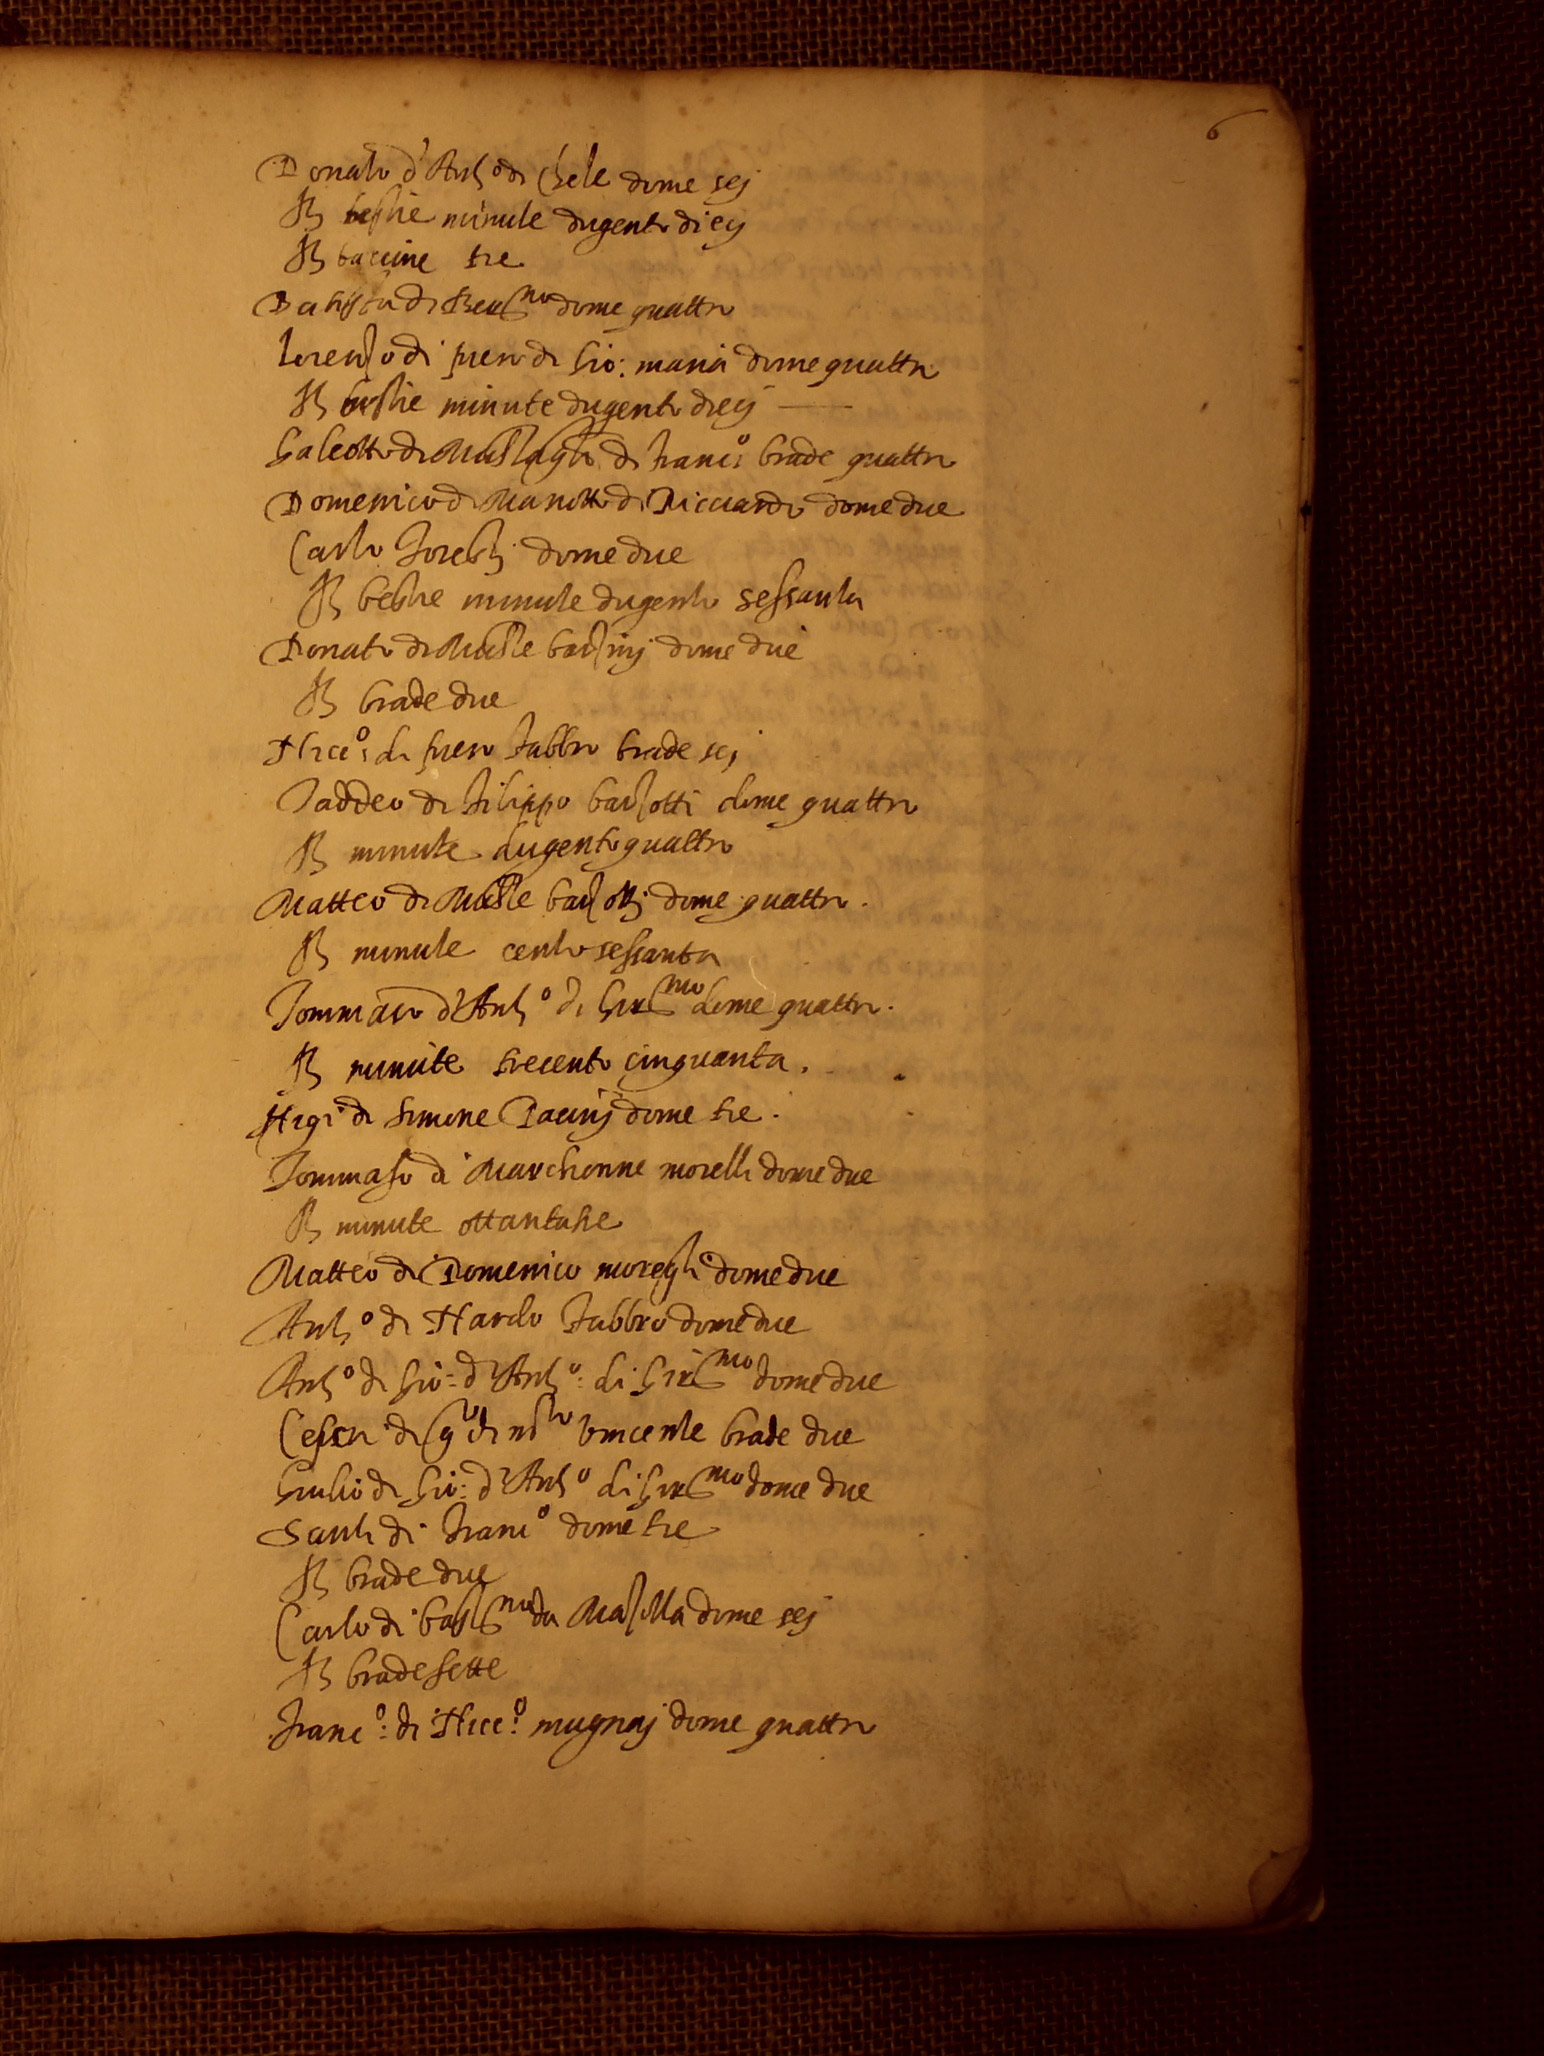 6
Donato d'Ant.o di Chele dome sej
R bestie minute dugento diecj
R baccine tre
Batista di Ber.mo dome quattro
Lorenzo di piero di Gio: maria dome quattro
R bestie minute dugento diecj
Galeotto di di Franc.o brade quattro
Domenico di Mariotto di Ricciardo dome due
Carlo dome due
R bestie minute dugento sessanta
Donato di dome due
R brade due
Nicc.o di piero fabbro brade sej
Taddeo di filippo barzotti dome quattro
R minute dugento quattro
Matteo di barzottj dome quattro.
R minute cento sessanta
Tommaso d'Ant.o di Gir.mo dome quattro.
R minute trecento cinquanta.
di Simone Paccinj dome tre.
Tommaso di Marchonne morelli dome due
R minute ottantatre
Matteo di Domenico moregli dome due
Ant.o di Nardo fabbro dome due
Ant.o di Gio: d'Ant.o: di Gir.mo dome due
di vincente brade due
Giulio di Gio: d'Ant.o di Gir.mo dome due
Santi di Franc.o dome tre
R brade due
Carlo di da dome sej
R brade sette
Franc.o: di Nicc.o: mugnaj dome quattro